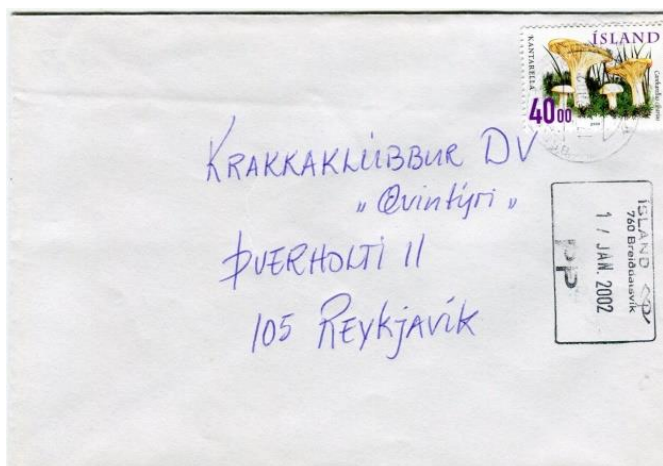 ÍSLAND
KANTARELLA
4000
KRAKKAKLÚBBUR DV
„Ævintýri„
ÞVERHOLTI 11
105 REYKJAVÍK
ÍSLAND
760 Breiðdalsvík
1 / JAN. 2002
pp